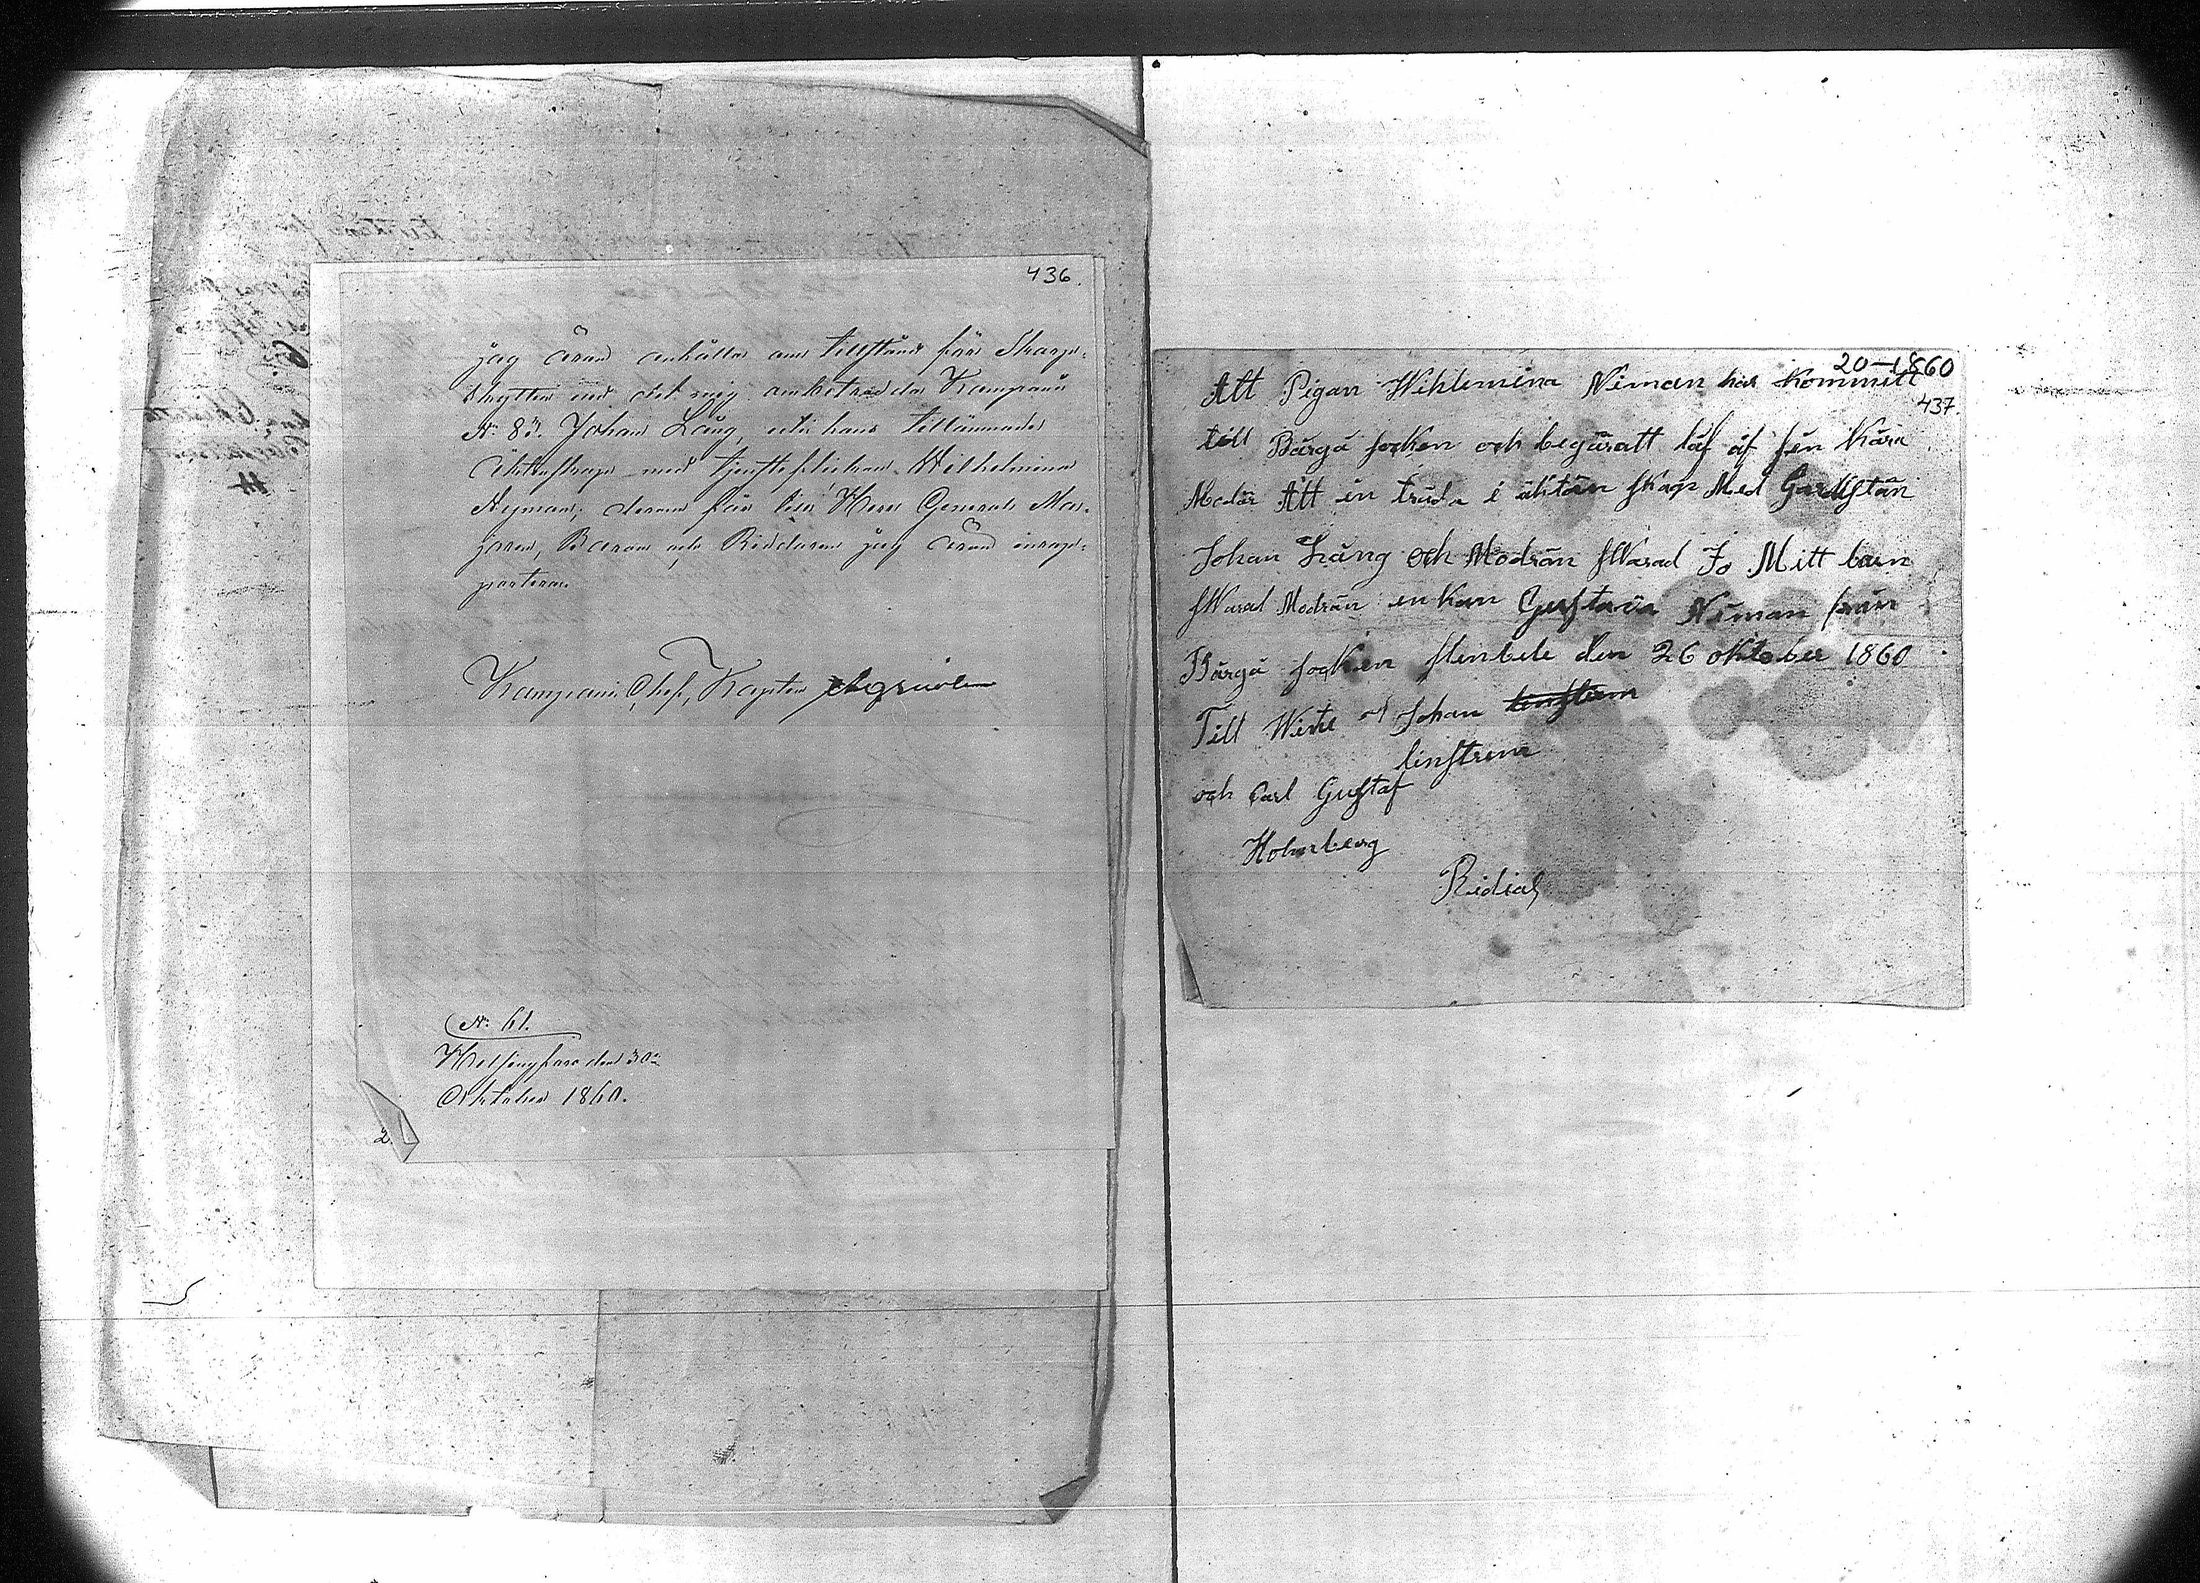 436.
jag äran anhålla om tillstånd för Skarp-
skytten vid det mig anbetrodda Kompani
N: 83. Johan Lång, uti hans tillämnade
äktenskap med tjensteflickan Wilhelmina
Nyman; derom för Herr General Ma-
joren, Baron och Riddaren jag äran inrap-
portera.
Kompani Chef, Kapten
N: 61.
Helsingfors den 30
Oktober 1860.
2.
20–1860
437.
Att Pigan Wihlemina Niman har kommitt
till Bårgå socken och begäratt låf af sin kära
Moder Att in träda i äktän skap Med Gardistän
Johan Lång och Modrän swarad Jo Mitt barn
swarad Modrän enkan Gustava Niman från
Bårgå socken stenbele den 26 oktober 1860
Till Witne af Johan
linström
och Carl Gustaf
Holmberg